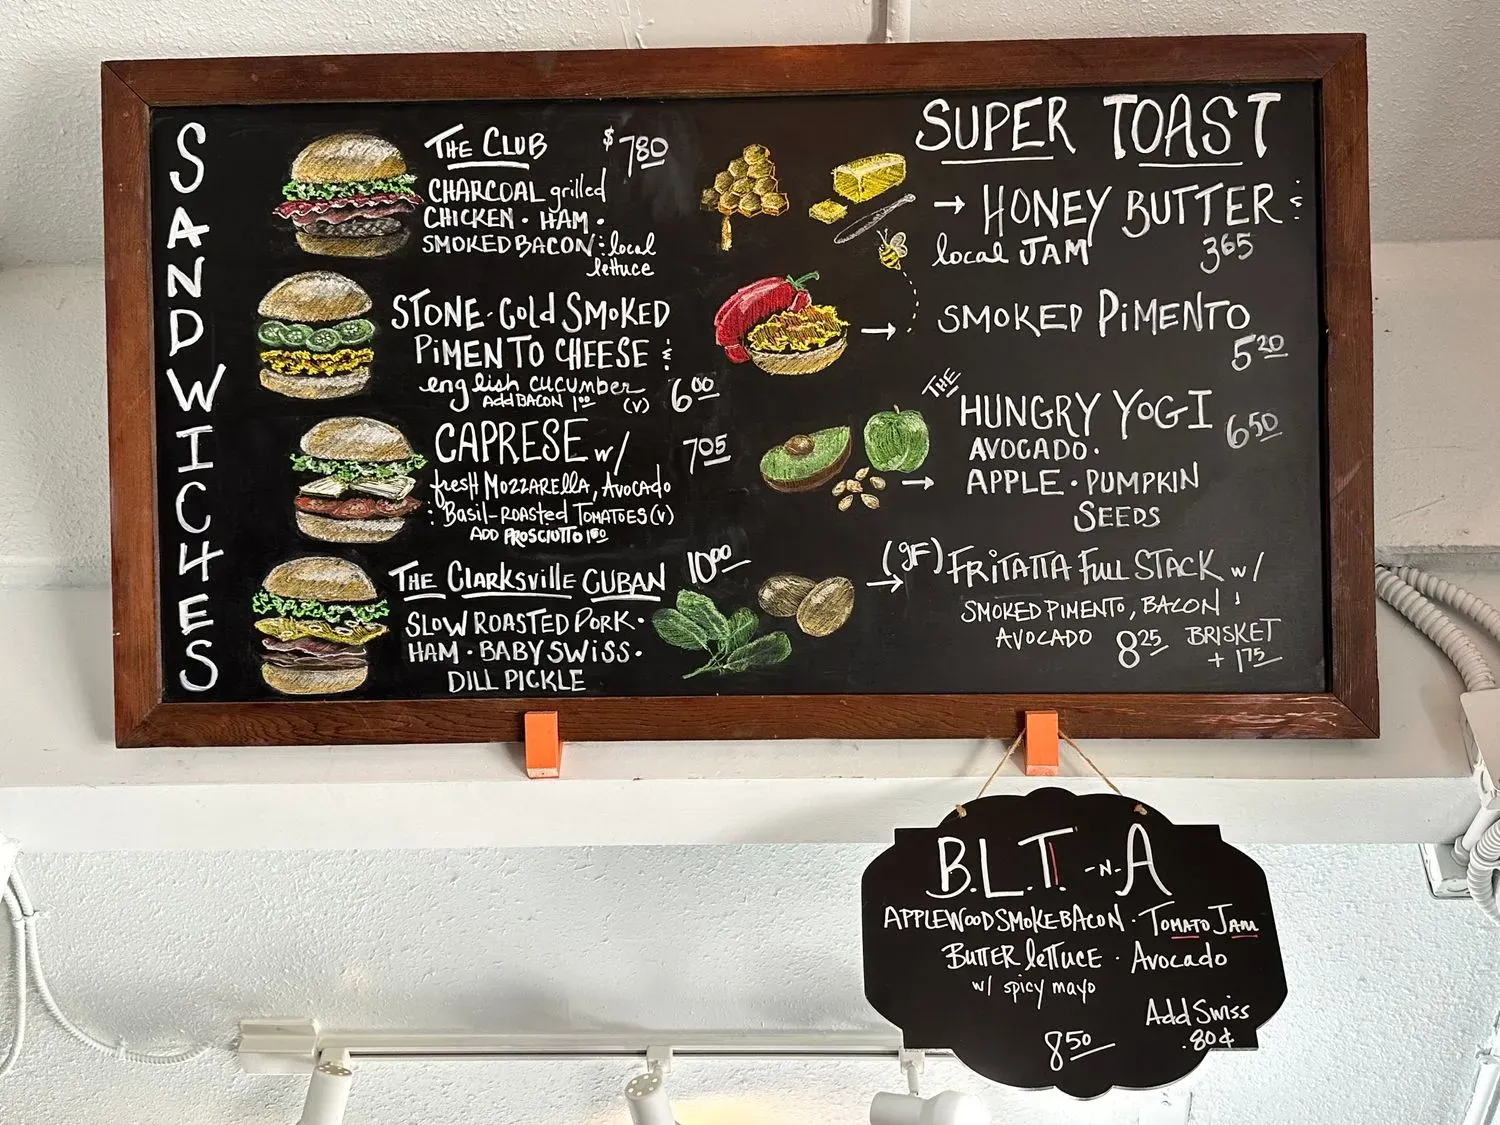 SANDWICHES
THE CLUB $780
CHARCOAL grilled
CHICKEN · HAM ·
SMOKED BACON : local
lettuce
STONE-Cold SMOKED
PiMENTO CHEESE &
english cucumber
Add BACON 1.00 (V) 600
CAPRESE w/ 705
fresH MOZZARELLA, AVOCADO
: Basil-ROASTED TOMATOES (V)
ADD PROSCIUTTO 1.00
THE Clarksville CUBAN 1000
SLOW ROASTED PORK ·
HAM · BABY SWISS ·
DILL PICKLE
SUPER TOAST
→ HONEY BUTTER &
local JAM 365
→ SMOKED PiMENTO
520
THE HUNGRY YOGI 650
AVOCADO ·
→ APPLE · PUMPKIN
SEEDS
→ (gF) FRiTATTA FULL STACK w/
SMOKED PIMENTO, BACON &
AVOCADO 825 BRISKET
+ 175
B.L.T. -N- A
APPLEWOOD SMOKE BACON · TOMATO JAM
BUTTER lettuce · Avocado
w/ spicy mayo
Add Swiss
850 .80¢